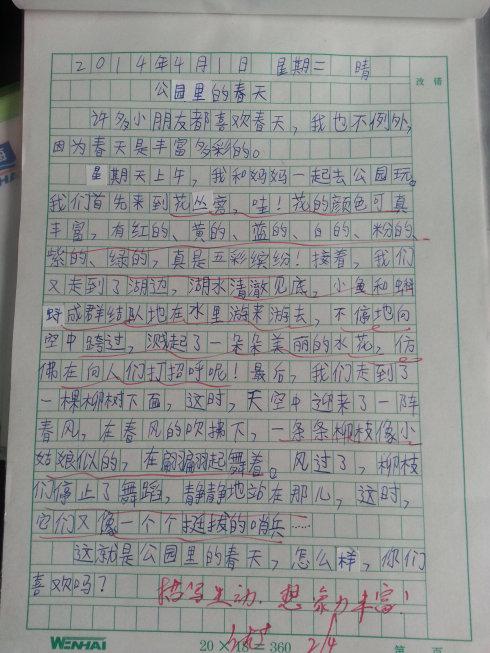 2014年4月1日 星期二 晴
改错
公园里的春天
许多小朋友都喜欢春天，我也不例外，
因为春天是丰富多彩的。
星期天上午，我和妈妈一起去公园玩。
我们首先来到花丛旁，哇！花的颜色可真
丰富，有红的、黄的、蓝的、白的、粉的、
紫的、绿的，真是五彩缤纷！接着，我们
又走到了湖边，湖水清澈见底，小鱼和蝌
蚪成群结队地在水里游来游去，不停地向
空中跨过，溅起了一朵朵美丽的水花，仿
佛在向人们打招呼呢！最后，我们走到了
一棵柳树下面，这时，天空中迎来了一阵
春风，在春风的吹拂下，一条条柳枝像小
姑娘似的，在翩翩起舞着。风过了，柳枝
们停止了舞蹈，静静地站在那儿，这时，
它们又像一个个挺拔的哨兵……
这就是公园里的春天，怎么样，你们
喜欢吗？
描写生动，想象力丰富！
2/4
WENHAI 20×18=360 第 页